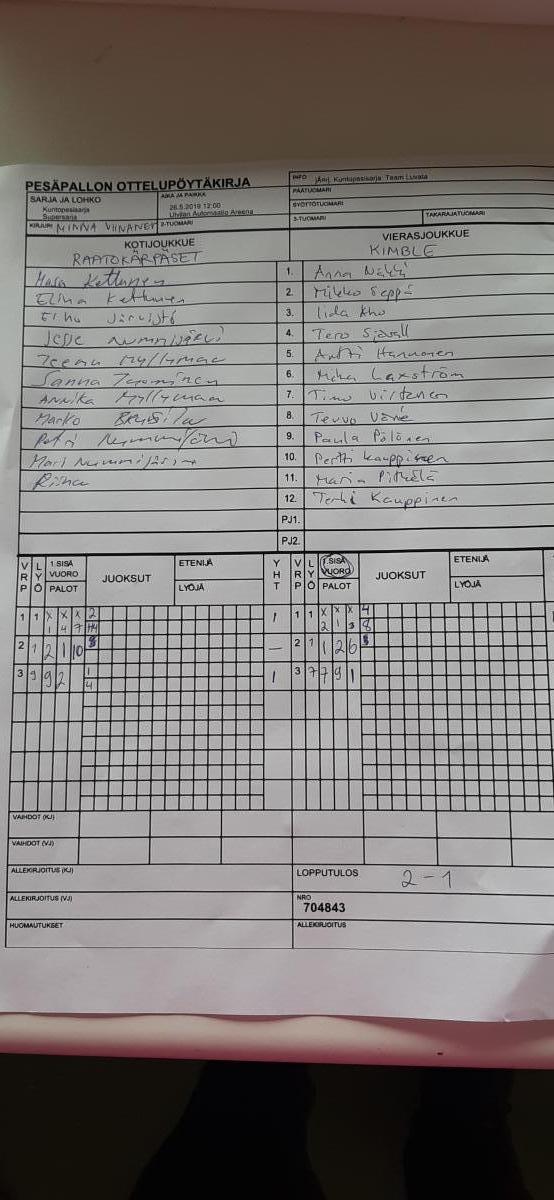 PESÄPALLON OTTELUPÖYTÄKIRJA
INFO jÄrj. Kuntopesisarja Team Luvata
SARJA JA LOHKO
Kuntopesisarja
Supersarja
AIKA JA PAIKKA
26.5.2019 12:00
Ulvilan Automaatio Areena
PÄÄTUOMARI
SYÖTTÖTUOMARI
KIRJURI MINNA VIINANEN
2-TUOMARI
3-TUOMARI
TAKARAJATUOMARI
KOTIJOUKKUE
RAATOKÄRPÄSET
VIERASJOUKKUE
KIMBLE
Kettunen 1. Anna
Elina Kettunen 2. Mikko Seppä
Järvistö 3. Iida Kho
Jesse Nummijärvi 4. Tero Sjövall
Teemu Myllymaa 5. Antti Hannonen
Sanna Tuominen 6. Mika Laxström
Annika Myllymaa 7. Timo Virtanen
Marko 8. Teuvo
Petri Nummijärvi 9. Paula Pölönen
Mari Nummijärvi 10. Pertti Kauppinen
Riina 11. Maria Pitkälä
12. Terhi Kauppinen
PJ1.
PJ2.
VRP LYÖ 1.SISÄ VUORO PALOT JUOKSUT ETENIJÄ LYÖJÄ YHT VRP LYÖ 1.SISÄ VUORO PALOT JUOKSUT ETENIJÄ LYÖJÄ
1 1 X X X 2 1 1 1 X X X 4
1 4 7 2 1 3 8
2 1 2 1 10 8 – 2 1 1 2 6
3 9 9 2 1 1 3 7 7 9 1
4
VAIHDOT (KJ)
VAIHDOT (VJ)
ALLEKIRJOITUS (KJ)
LOPPUTULOS 2 - 1
ALLEKIRJOITUS (VJ)
NRO
704843
HUOMAUTUKSET
ALLEKIRJOITUS